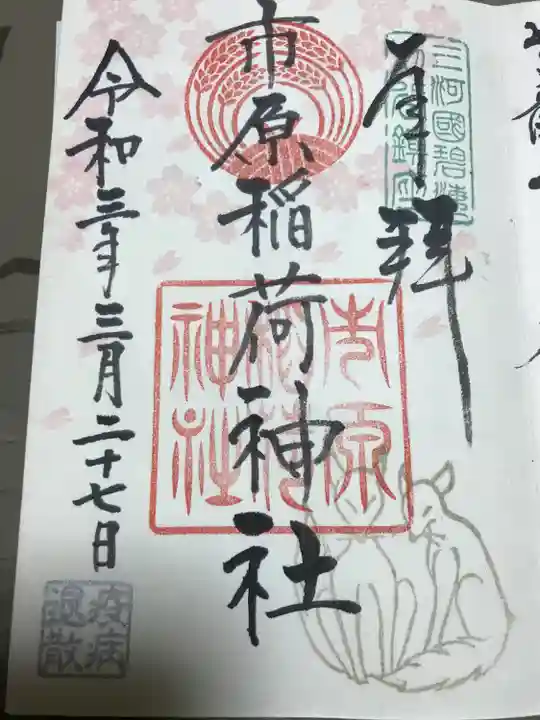 奉拝
三河國碧海
市原稲荷神社
市原
稲荷
神社
令和三年三月二十七日
疫病
退散